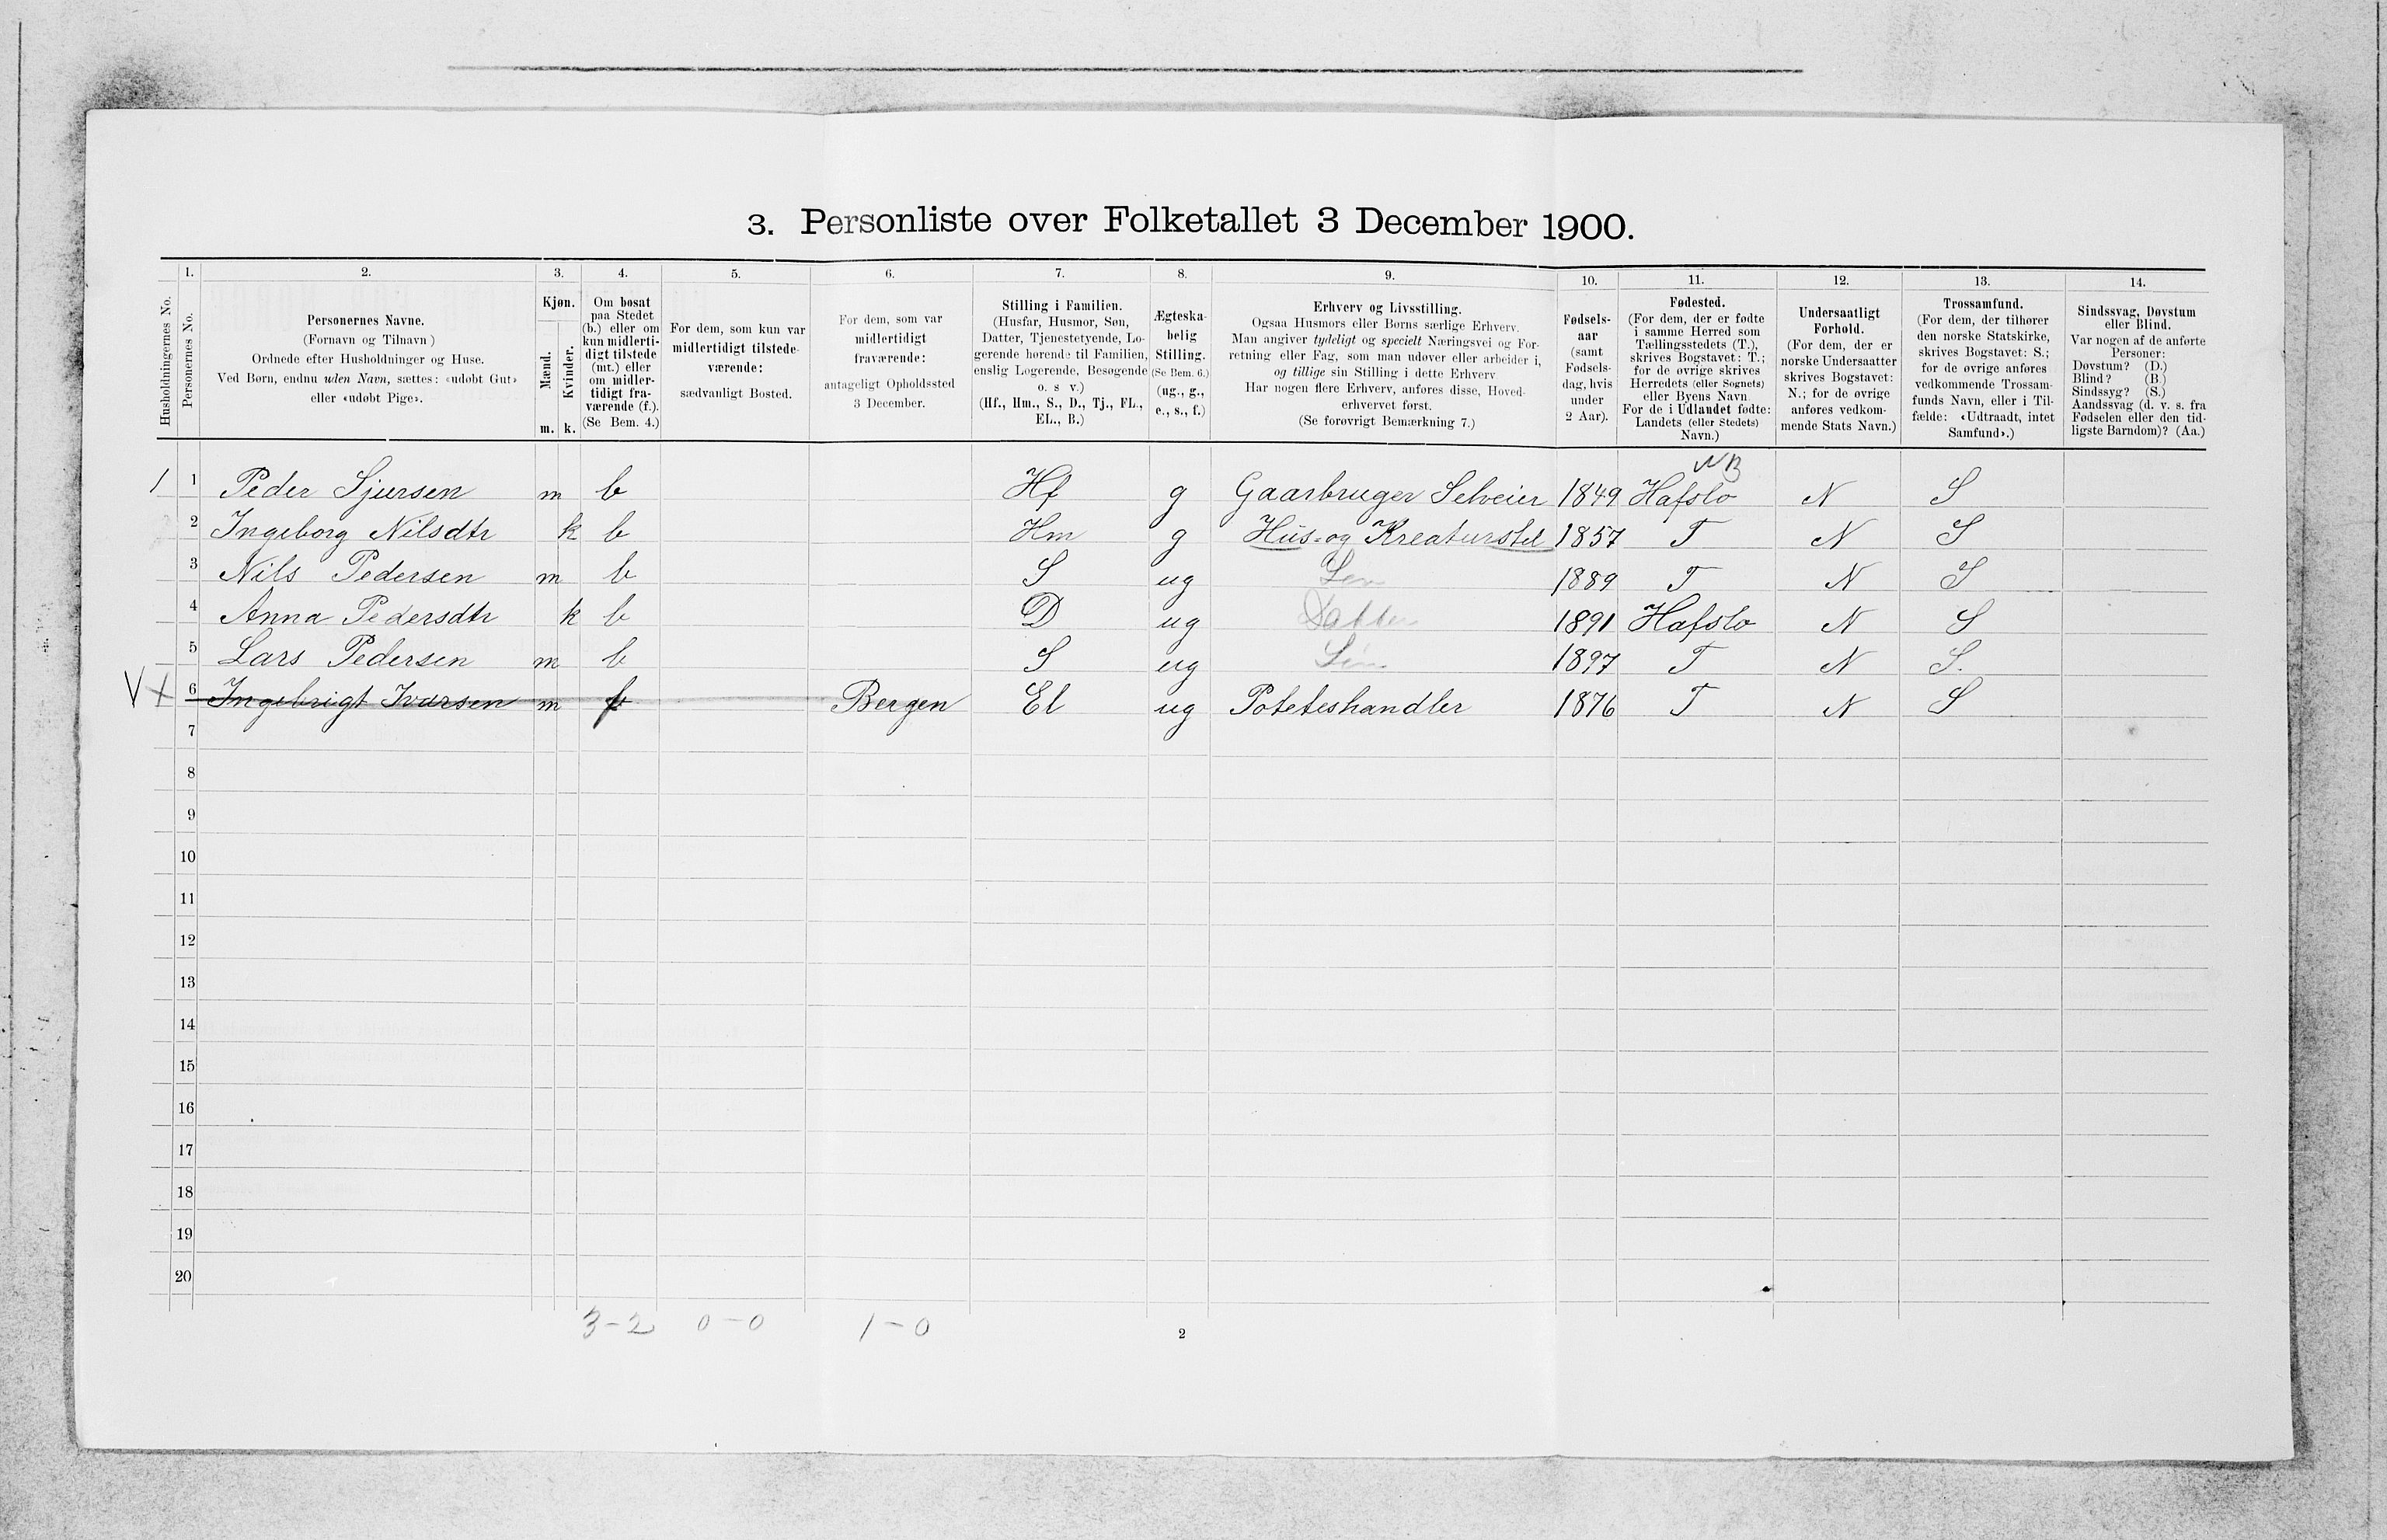 3. Personliste over Folketallet 3 December 1900.
1. 2. 3. 4. 5. 6. 7. 8. 9. 10. 11. 12. 13. 14.
Husholdningernes No.
Personernes No.
Personernes Navne.
(Fornavn og Tilnavn)
Ordnede efter Husholdninger og Huse.
Ved Børn, endnu uden Navn, sættes: «udøbt Gut»
eller «udøbt Pige».
Kjøn.
Mænd.
Kvinder.
m. k.
Om bosat
paa Stedet
(b.) eller om
kun midlerti-
digt tilstede
(mt.) eller
om midler-
tidigt fra-
værende (f.).
(Se Bem. 4.)
For dem, som kun var
midlertidigt tilstede-
værende:
sædvanligt Bosted.
For dem, som var
midlertidigt
fraværende:
antageligt Opholdssted
3 December.
Stilling i Familien.
(Husfar, Husmor, Søn,
Datter, Tjenestetyende, Lo-
gerende hørende til Familien,
enslig Logerende, Besøgende
o. s v.)
(Hf., Hm., S., D., Tj., FL.,
EL., B.)
Ægteska-
belig
Stilling.
(Se Bem. 6.)
(ug., g.,
e., s., f.)
Erhverv og Livsstilling.
Ogsaa Husmors eller Børns særlige Erhverv.
Man angiver tydeligt og specielt Næringsvei og For-
retning eller Fag, som man udøver eller arbeider i,
og tillige sin Stilling i dette Erhverv
Har nogen flere Erhverv, anføres disse, Hoved-
erhvervet først.
(Se forøvrigt Bemærkning 7.)
Fødsels-
aar
(samt
Fødsels-
dag, hvis
under
2 Aar).
Fødested.
(For dem, der er fødte
i samme Herred som
Tællingsstedets (T.),
skrives Bogstavet: T.;
for de øvrige skrives
Herredets (eller Sognets)
eller Byens Navn
For de i Udlandet fødte:
Landets (eller Stedets)
Navn.)
Undersaatligt
Forhold.
(For dem, der er
norske Undersaatter
skrives Bogstavet:
N.; for de øvrige
anføres vedkom-
mende Stats Navn.)
Trossamfund.
(For dem, der tilhører
den norske Statskirke,
skrives Bogstavet: S.;
for de øvrige anføres
vedkommende Trossam-
funds Navn, eller i Til-
fælde: «Udtraadt, intet
Samfund».)
Sindssvag, Døvstum
eller Blind.
Var nogen af de anførte
Personer:
Døvstum? (D.)
Blind? (B.)
Sindssyg? (S.)
Aandssvag (d. v. s. fra
Fødselen eller den tid-
ligste Barndom)? (Aa.)
NB
1 1 Peder Sjursen m b Hf g Gaarbruger Selveier 1849 Hafslo N S
2 Ingeborg Nilsdtr k b Hm g Hus- og Kreaturstel 1857 T N S
3 Nils Pedersen m b S ug Søn 1889 T N S
4 Anna Pedersdtr k b D ug Datter 1891 Hafslo N S
5 Lars Pedersen m b S ug Søn 1897 T N S.
V + 6 Ingebrigt Ivarsen m f Bergen El ug Poteteshandler 1876 T N S
7
8
9
10
11
12
13
14
15
16
17
18
19
20
3-2 0-0 1-0
2